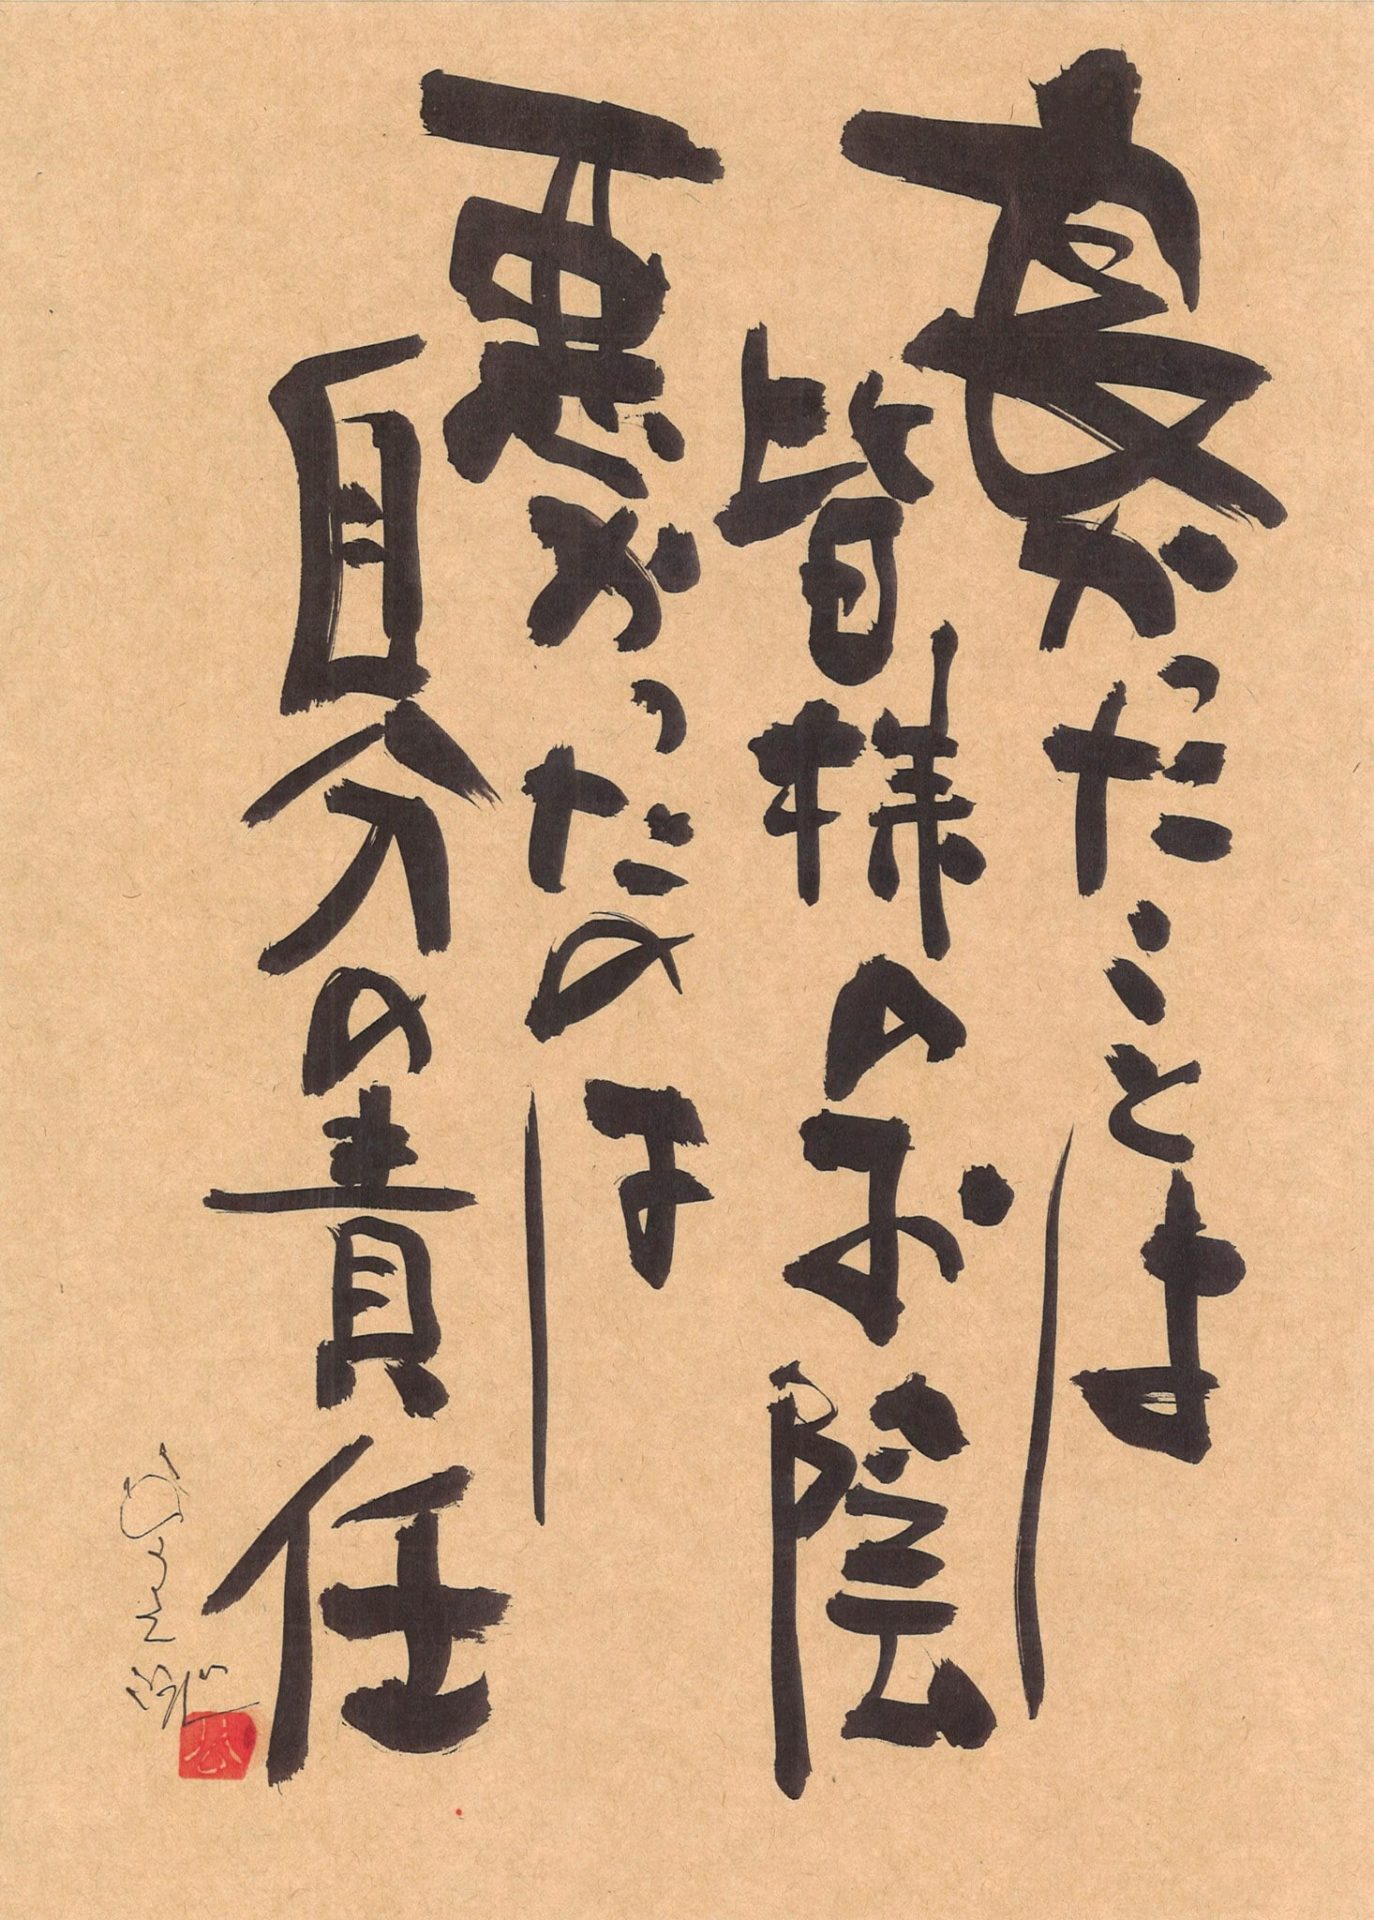 良かったことは
皆様のお陰
悪かったのは
自分の責任